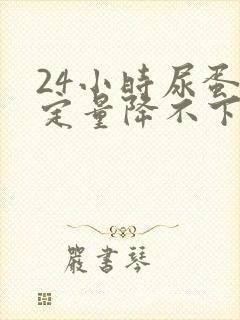 24小時尿蛋
定量降不下
嚴書琴